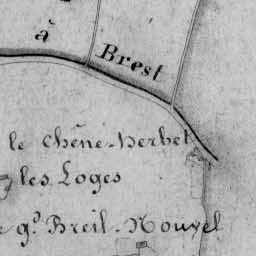 à
Brest
le chêne-herbet
les Loges
gd. Breil-Nouvel